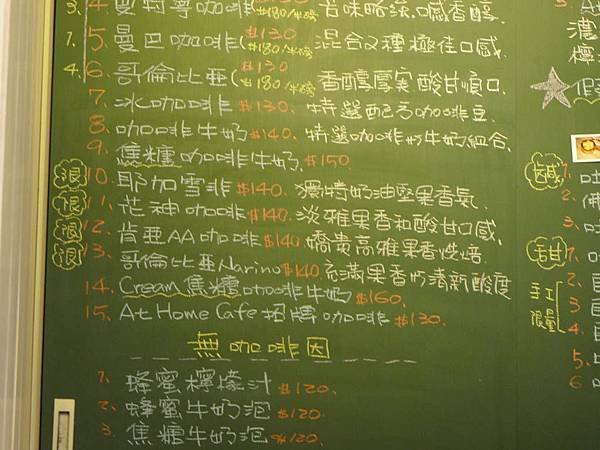 3. 4. 曼特寧咖啡 $180/半磅 苦味略淡、口感香醇
1. 5. 曼巴咖啡($130 $180/半磅 混合2種極佳口感.
4. 6. 哥倫比亞($130 $180/半磅 香醇厚實 酸甘順口.
7. 冰咖啡 $130. 特選配方咖啡豆.
8. 咖啡牛奶 $140. 特選咖啡份牛奶組合.
9. 焦糖咖啡牛奶. $150.
10. 耶加雪菲 $140. 濃特奶油堅果香氣.
11. 芒神咖啡 $140. 淡雅果香和酸甘口感.
12. 肯亞AA咖啡 $140. 嬌貴高雅果香烘焙.
13. 哥倫比亞Narino $140. 充滿果香的清新酸度
14. Cream焦糖咖啡牛奶 $160.
15. At Home Cafe招牌咖啡 $130.
無咖啡因
1. 蜂蜜檸檬汁 $120.
2. 蜂蜜牛奶泡 $120.
3. 焦糖牛奶泡 $120.
鹹
1. 吐
2. 佛
3. 吐
甜
手工
限量